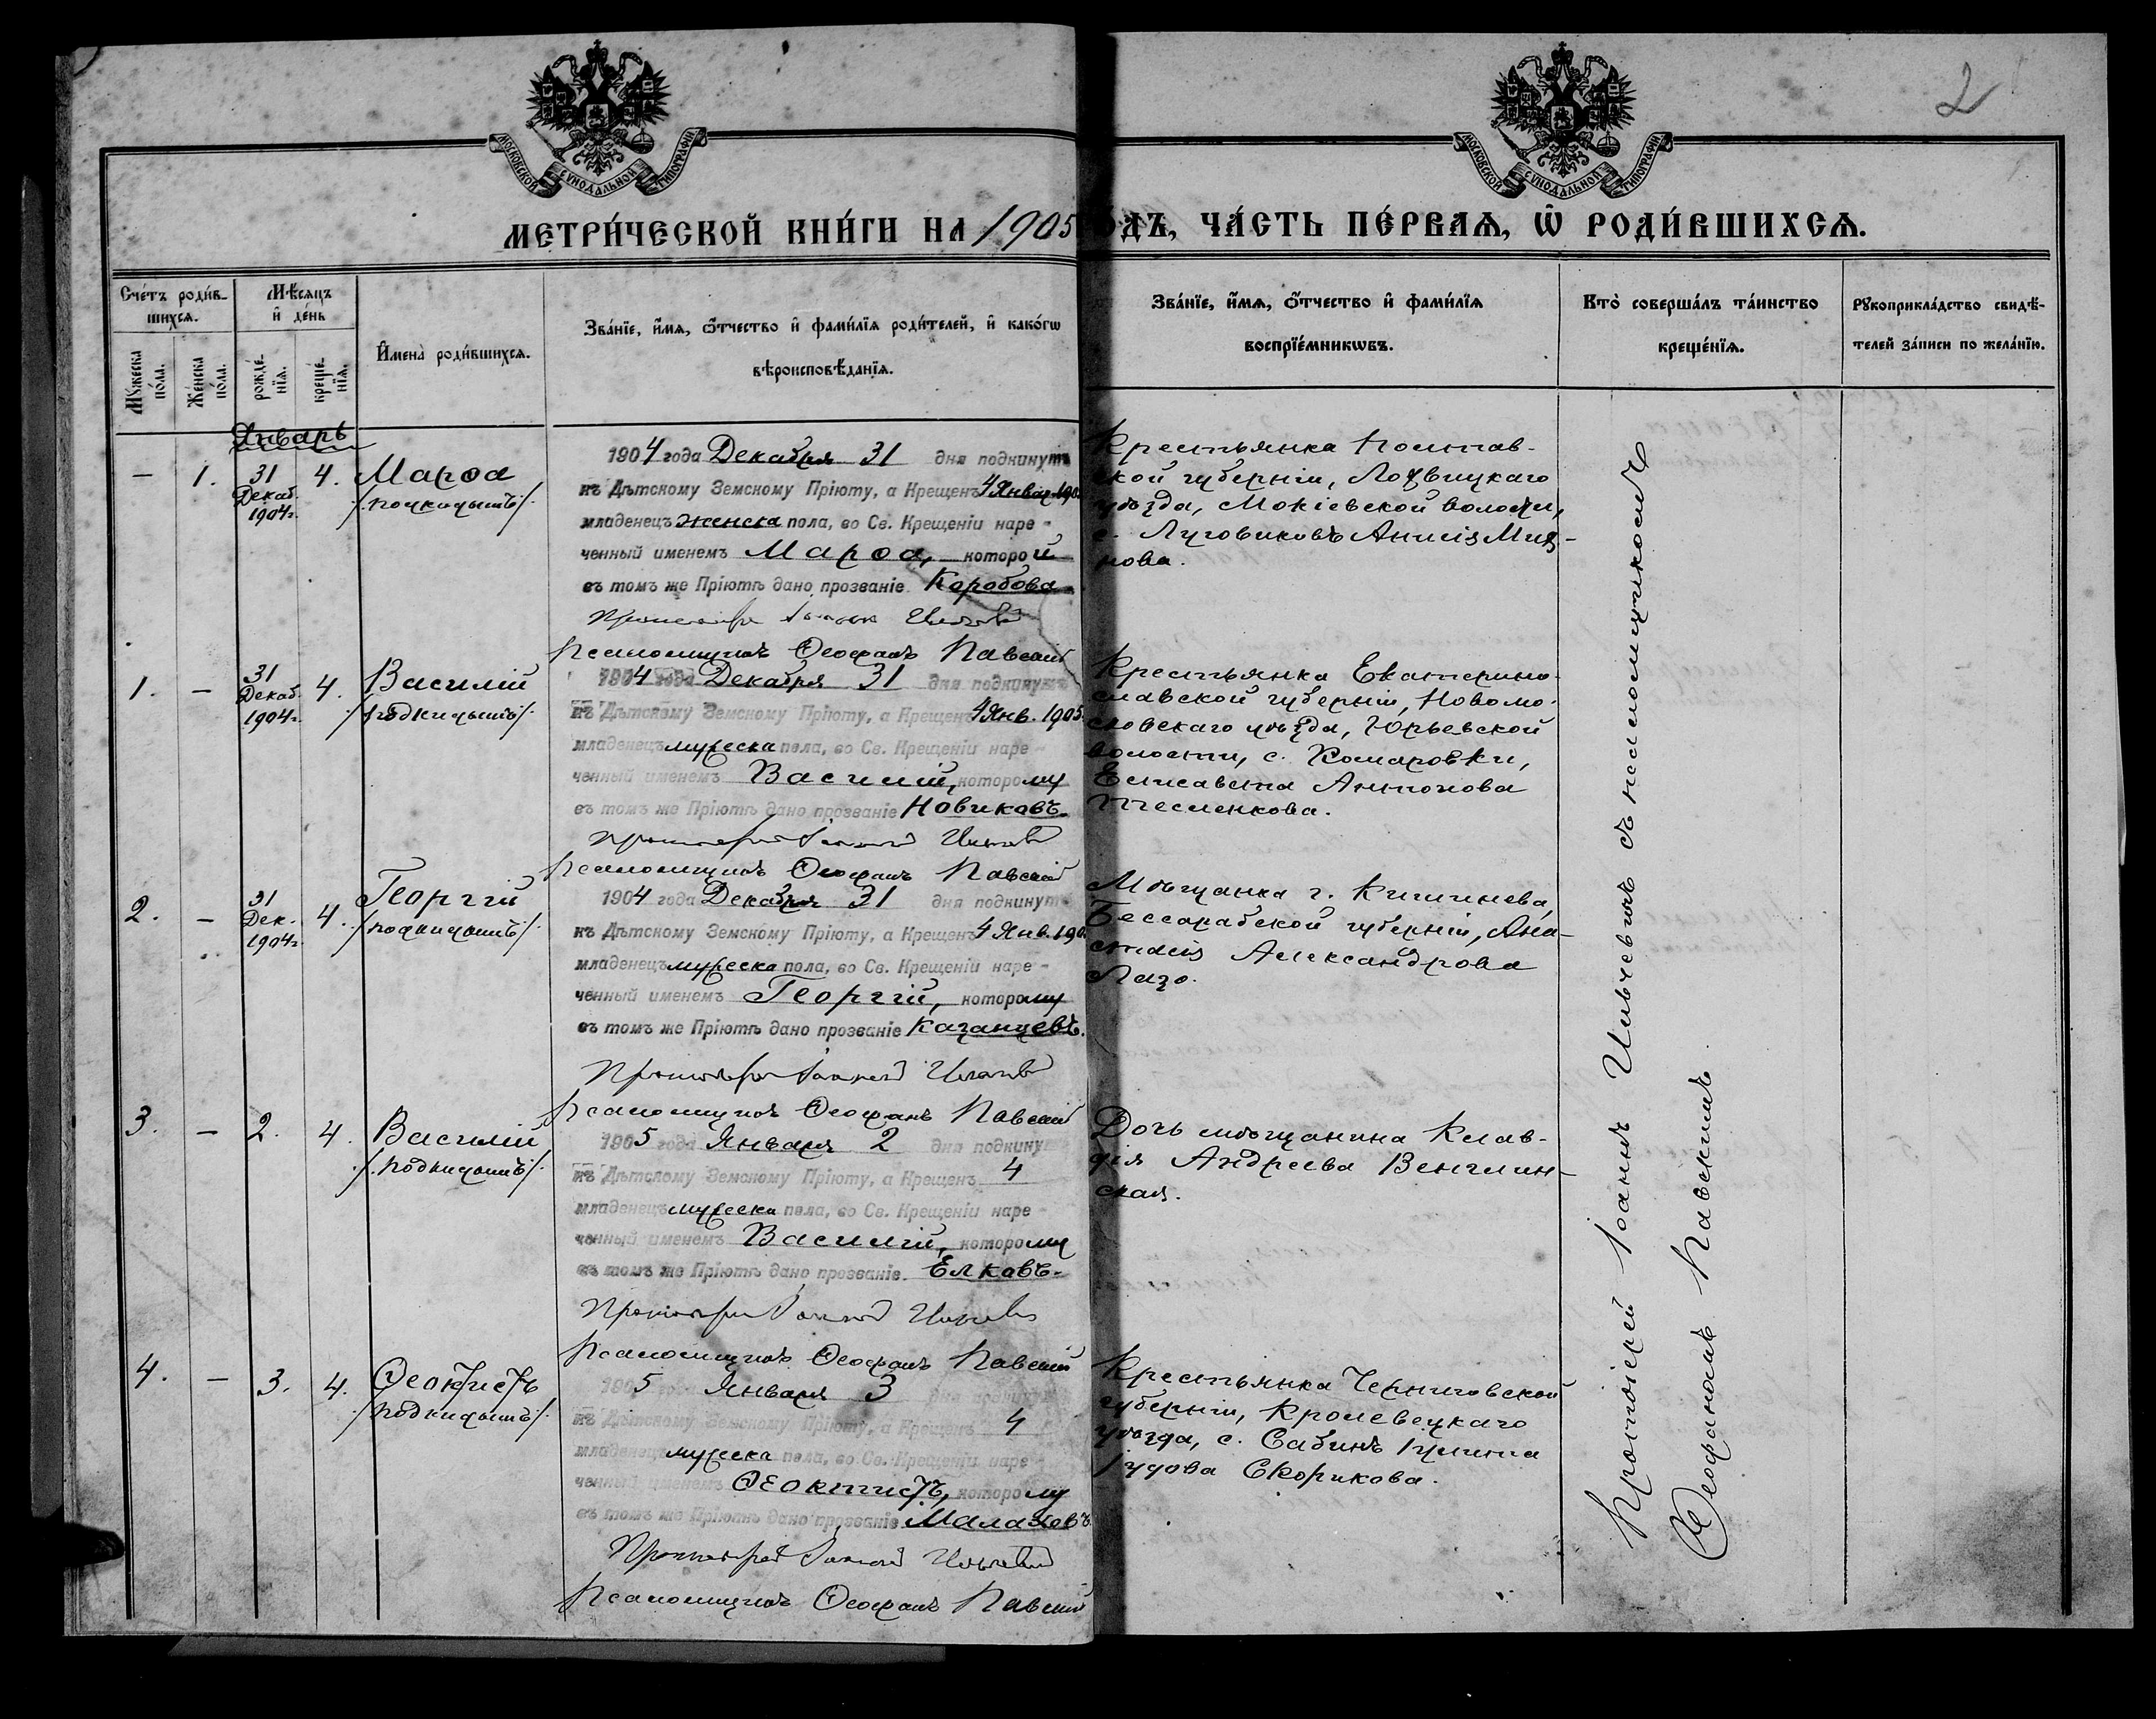 2
МОСКОВСКОЙ СѴНОДАЛЬНОЙ ТИПОГРАФІИ
МОСКОВСКОЙ СѴНОДАЛЬНОЙ ТИПОГРАФІИ
МЕТРИ́ЧЕСКОЙ КНИ́ГИ НА 1905
ОДЪ, ЧА́СТЬ ПЕ́РВАѦ, Ѡ РОДИ́ВШИХСѦ.
Сче́тъ роди́в-
шихсѧ.
Мꙋ́жеска
по́ла.
Же́нска
по́ла.
Мѣ́сѧцъ
и҆ де́нь
рожде́-
нїѧ.
креще́-
нїѧ.
И҆мена̀ роди́вшихсѧ.
Зва́нїе, и҆́мѧ, ѻ҆́тчество и҆ фами́лїѧ роди́телей, и҆ како́гѡ
вѣроисповѣ́данїѧ.
Зва́нїе, и҆́мѧ, ѻ҆́тчество и҆ фами́лїѧ
воспрїе́мникѡвъ.
Кто̀ соверша́лъ та́инство
креще́нїѧ.
Рꙋкоприкла́дство свидѣ́-
телей за́писи по жела́нїю.
Январь
— 1. 31 Декаб. 1904г. 4. Марѳа
/.подкидышъ/.
1904 года Декабря 31 дня подкинутъ
къ Дѣтскому Земскому Пріюту, а Крещенъ 4 Январ. 190
младенецъ женска пола, во Св. Крещеніи наре-
ченный именемъ Марѳа, которой
въ томъ же Пріютѣ дано прозваніе Коробова
Протоіерей Іоаннъ
Псаломщикъ Ѳеофанъ Павскій
Крестьянка Полтав-
ской губерніи, Лохвицкаго
уѣзда, Мокіевской волости,
с. Луговиковъ Анисія
нова.
1. — 31 Декаб. 1904г. 4. Василій
/.подкидышъ/.
1904 года Декабря 31 дня подкинутъ
къ Дѣтскому Земскому Пріюту, а Крещенъ 4 Янв. 1905.
младенецъ мужеска пола, во Св. Крещеніи наре-
ченный именемъ Василій, которому
въ томъ же Пріютѣ дано прозваніе Новиковъ.
Протоіерей Іоаннъ
Псаломщикъ Ѳеофанъ Павскій
Крестьянка Екатерино-
славской губерніи, Новомо-
сковскаго уѣзда, Юрьевской
волости, с. Комаровки,
Елисавета Антонова
Тесленкова.
2. — 31 Дек. 1904г. 4. Георгій
/.подкидышъ/.
1904 года Декабря 31 дня подкинутъ
къ Дѣтскому Земскому Пріюту, а Крещенъ 4 Янв. 190
младенецъ мужеска пола, во Св. Крещеніи наре-
ченный именемъ Георгій, которому
въ томъ же Пріютѣ дано прозваніе Казанцевъ.
Протоіерей Іоаннъ
Псаломщикъ Ѳеофанъ Павскій
Мѣщанка г. Кишинева,
Бессарабской губерніи, Ана-
стасія Александрова
Лазо.
3. — 2. 4. Василій
/.подкидышъ/.
1905 года Января 2 дня подкинутъ
къ Дѣтскому Земскому Пріюту, а Крещенъ 4
младенецъ мужеска пола, во Св. Крещеніи наре-
ченный именемъ Василій, которому
въ томъ же Пріютѣ дано прозваніе Елковъ.
Протоіерей Іоаннъ
Псаломщикъ Ѳеофанъ Павскій
Дочь мѣщанина Клав-
дія Андреева Венглин-
ская.
4. — 3. 4. Ѳеоктистъ
/.подкидышъ/.
1905 года Января 3 дня подкинутъ
къ Дѣтскому Земскому Пріюту, а Крещенъ 4
младенецъ мужеска пола, во Св. Крещеніи наре-
ченный именемъ Ѳеоктистъ, которому
въ томъ же Пріютѣ дано прозваніе
Протоіерей Іоаннъ
Псаломщикъ Ѳеофанъ Павскій
Крестьянка Черниговской
губерніи, Кролевецкаго
уѣзда, с.
Скорикова.
Протоіерей Іоаннъ Ильичевъ съ псаломщикомъ
Ѳеофаномъ Павскимъ.